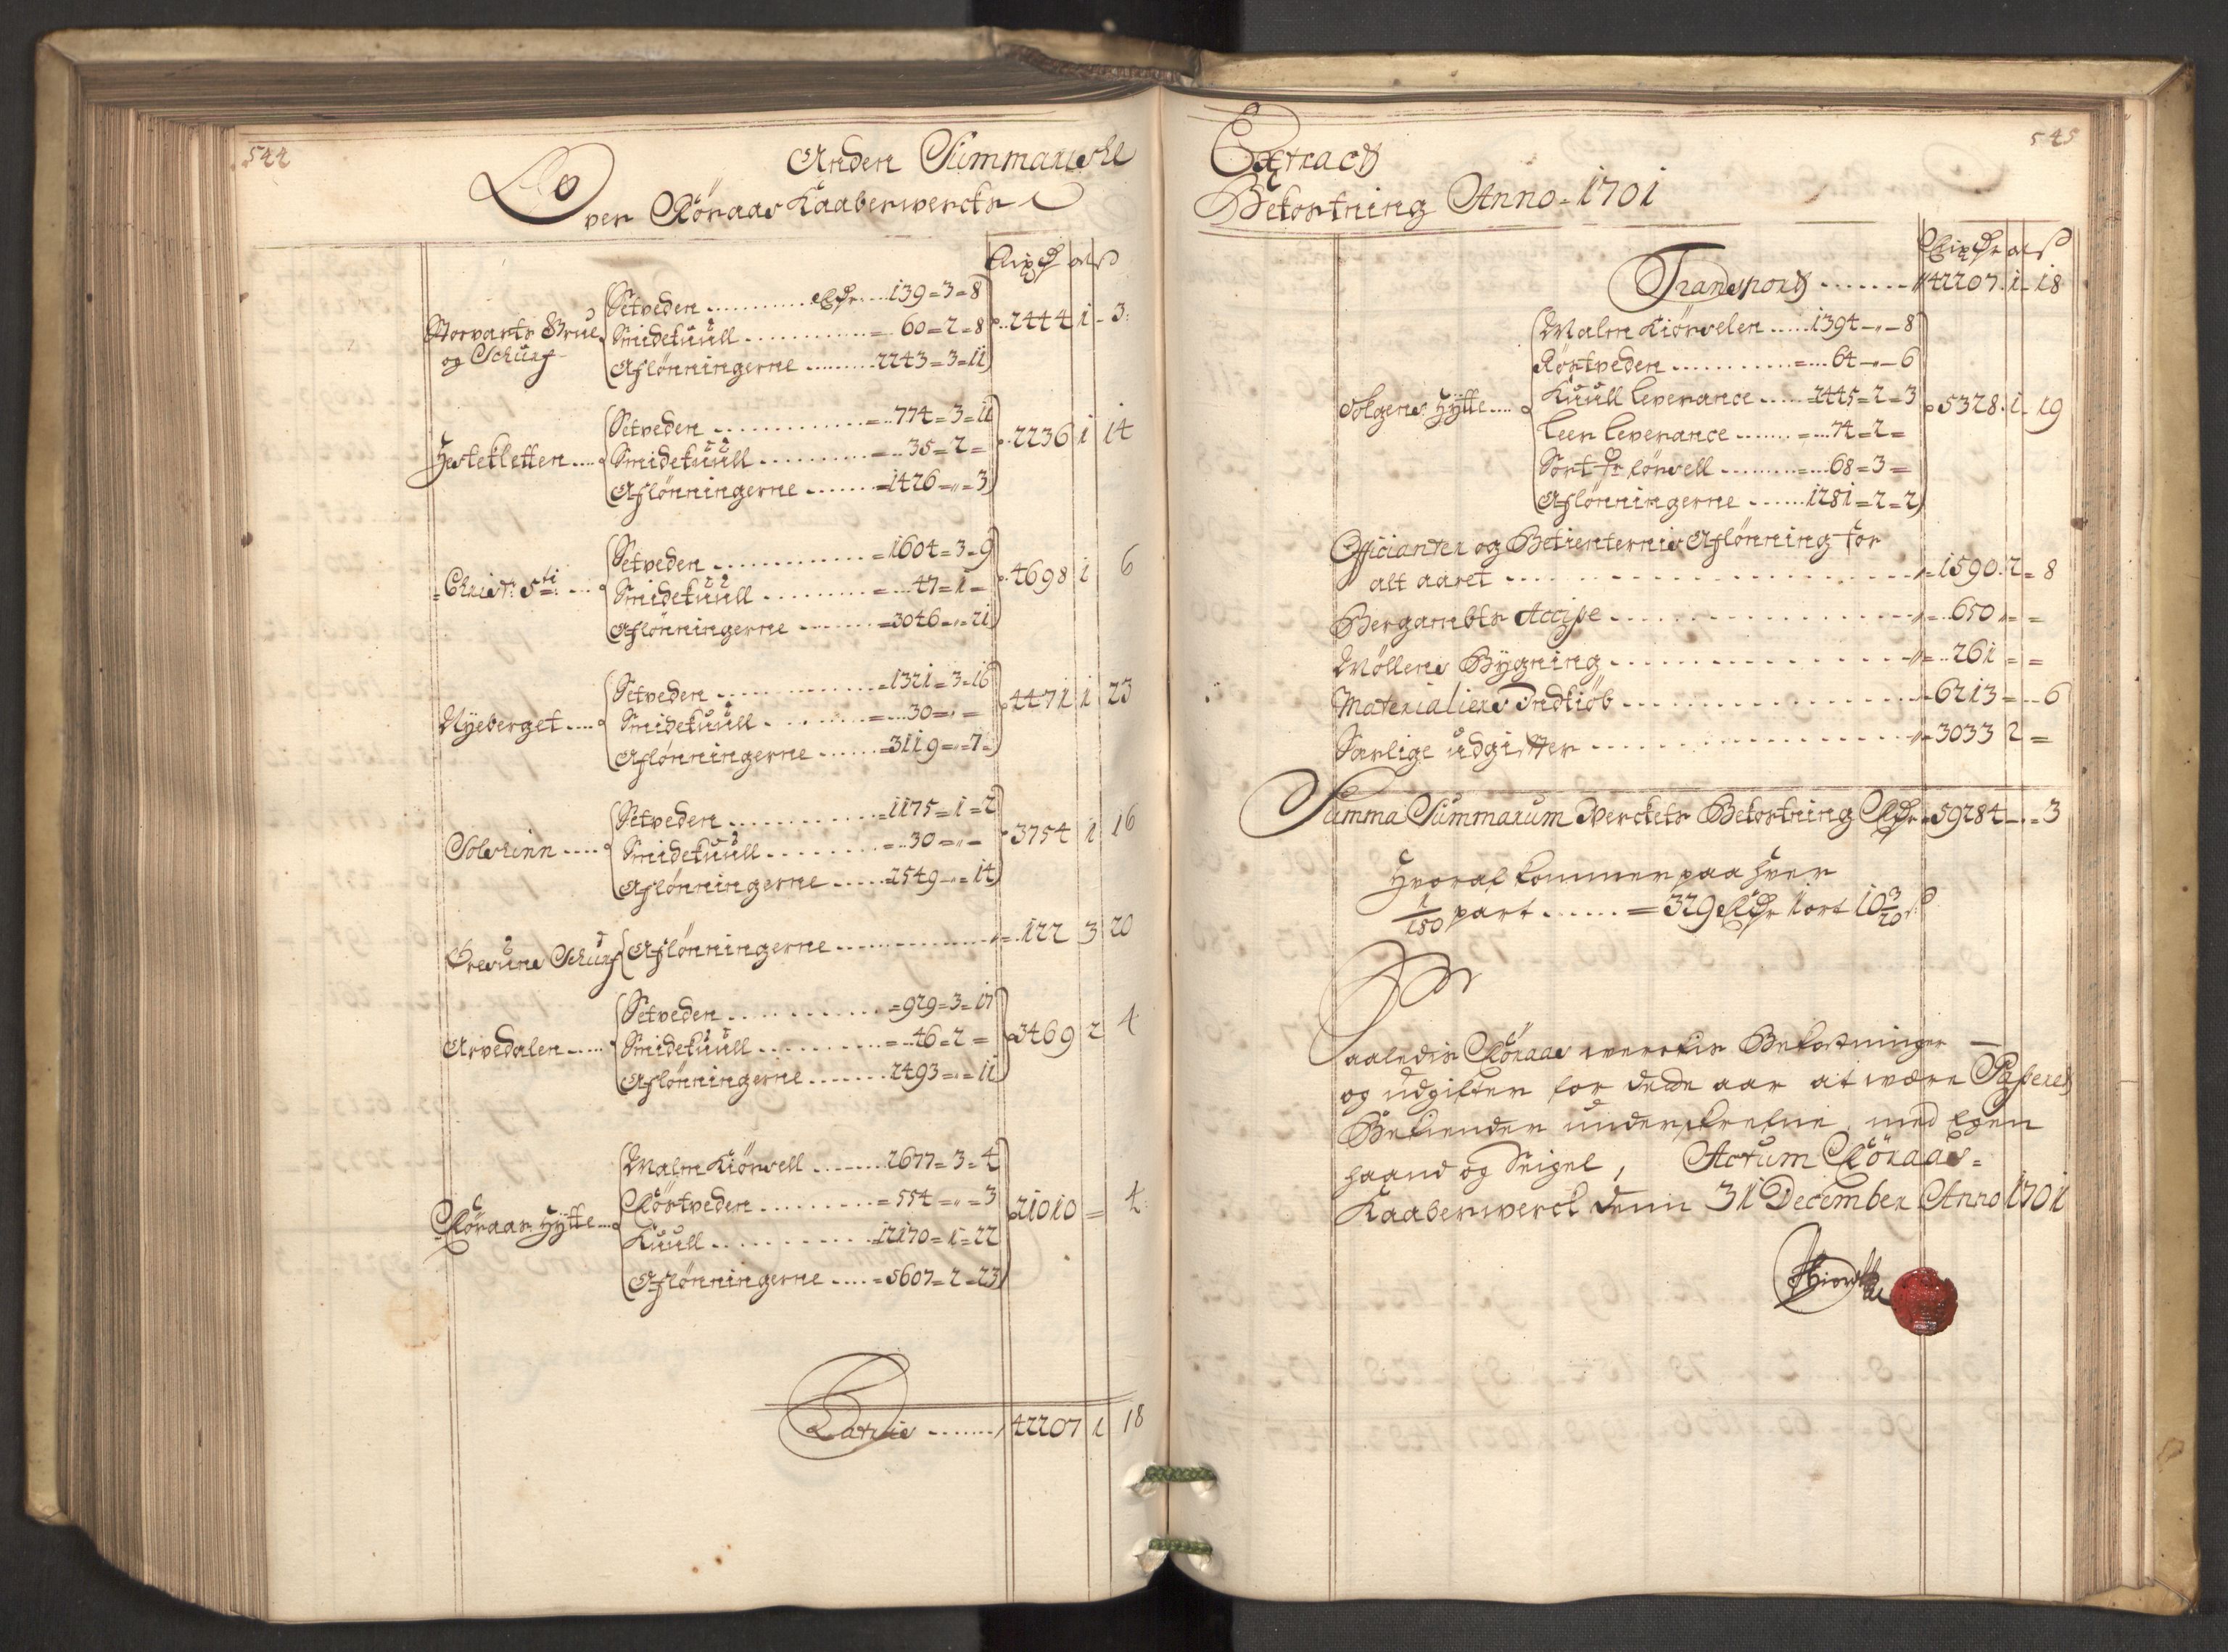 544
Anden Summariske
Over Röraas Kaaberwercks
Rixd ort ß
Storvarts Grue
og Schürf
Setveden ............ Rdr .... 139=3=8
Smidekuull ............ = 60=2=8
Aflönningerne ......... 2243=3=11
2444 1 3
Hestekletten ....
Setveden ............ =774=3=11
Smidekuull ............ =35=2=
Aflönningerne ....... =1426=„=3
2236 1 14
Christ: 5ti: ....
Setveden ............ =1604=3=9
Smidekuull ......... =47=1=
Aflönningerne ....... =3046=„=21
4698 1 6
Nyeberget ....
Setveden ............ =1321=3=16
Smidekuull ......... =30=„=
Aflönningerne ...... =3119=„=7=
4471 1 23
Solskinn ....
Setveden ............ =1175=1=2
Smidekuull ......... =30=„=
Aflönningerne ..... =2549=„=14
3754 1 16
Schürf Aflönningerne ............ =122 3 20
Arvedalen ....
Setveden ............ =929=3=17
Smidekuull ......... =46=2=
Aflönningerne ....... 2493=„=11
3469 2 4
Röraas Hytte ...
Malm Kiörsell ....... 2677=3=4
Röstveden ......... =554=„=3
Kuull ............ 12170=1=22
Aflönningerne ..... =5607=2=23
21010 = 4
Latus ........ 42207 1 18
545
Extract
Bekostning Anno 1701
Rixdr ort ß
Transport ........ 42207 1 18
Tolgens Hytte ....
Malm Kiörselen ..... 1394 -„- 8
Röstveden ............ =64 -„- 6
Kuull Leverance ..... =2445=2=3
Leer Leverance ....... =74=2=
=68=3=
Aflönningerne ...... 1281=2=2
5328 1 19
Officianter og Betienternis Aflönning for
alt aaret ........................ =1590 2 8
Bergambts Accise ........................ =650 = =
Möllens Bygning ........................ =261 = =
Materialiers Indkiöb .................. =6213 = 6
Særlige udgifter .................. =3033 2 =
Summa Summarum Werckets Bekostning Rdr =59284 -„- 3
Hvoraf kommer paa hver
1/150 part ...... =329 Rdr 1 ort 10 3/20 ß
Saaledis Röraas werckis Bekostninger
og udgifter for dette aar at være Passeret
Bekiender underskrefne med Egen
haand og Seigel, Actum Röraas=
Kaaberwerck denn 31 December Anno 1701